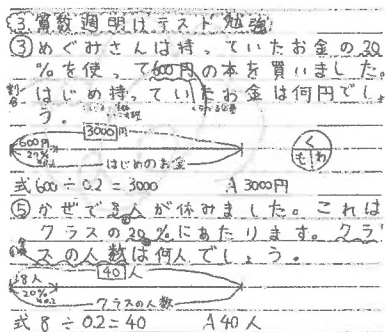 ③算数週明けテスト勉強
③めぐみさんは持っていたお金の20
%を使って600円の本を買いました。
はじめ持っていたお金は何円でしょ
う。
3000円
600円
20%
はじめのお金
く
も わ
式 600÷0.2=3000 A 3000円
⑤かぜで8人が休みました。これは
クラスの20%にあたります。クラ
スの人数は何人でしょう。
40人
8人
20%
クラスの人数
式 8÷0.2=40 A 40人